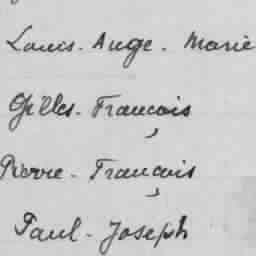 Louis-Ange-Marie
Gilles-François
Pierre-François
Paul-Joseph